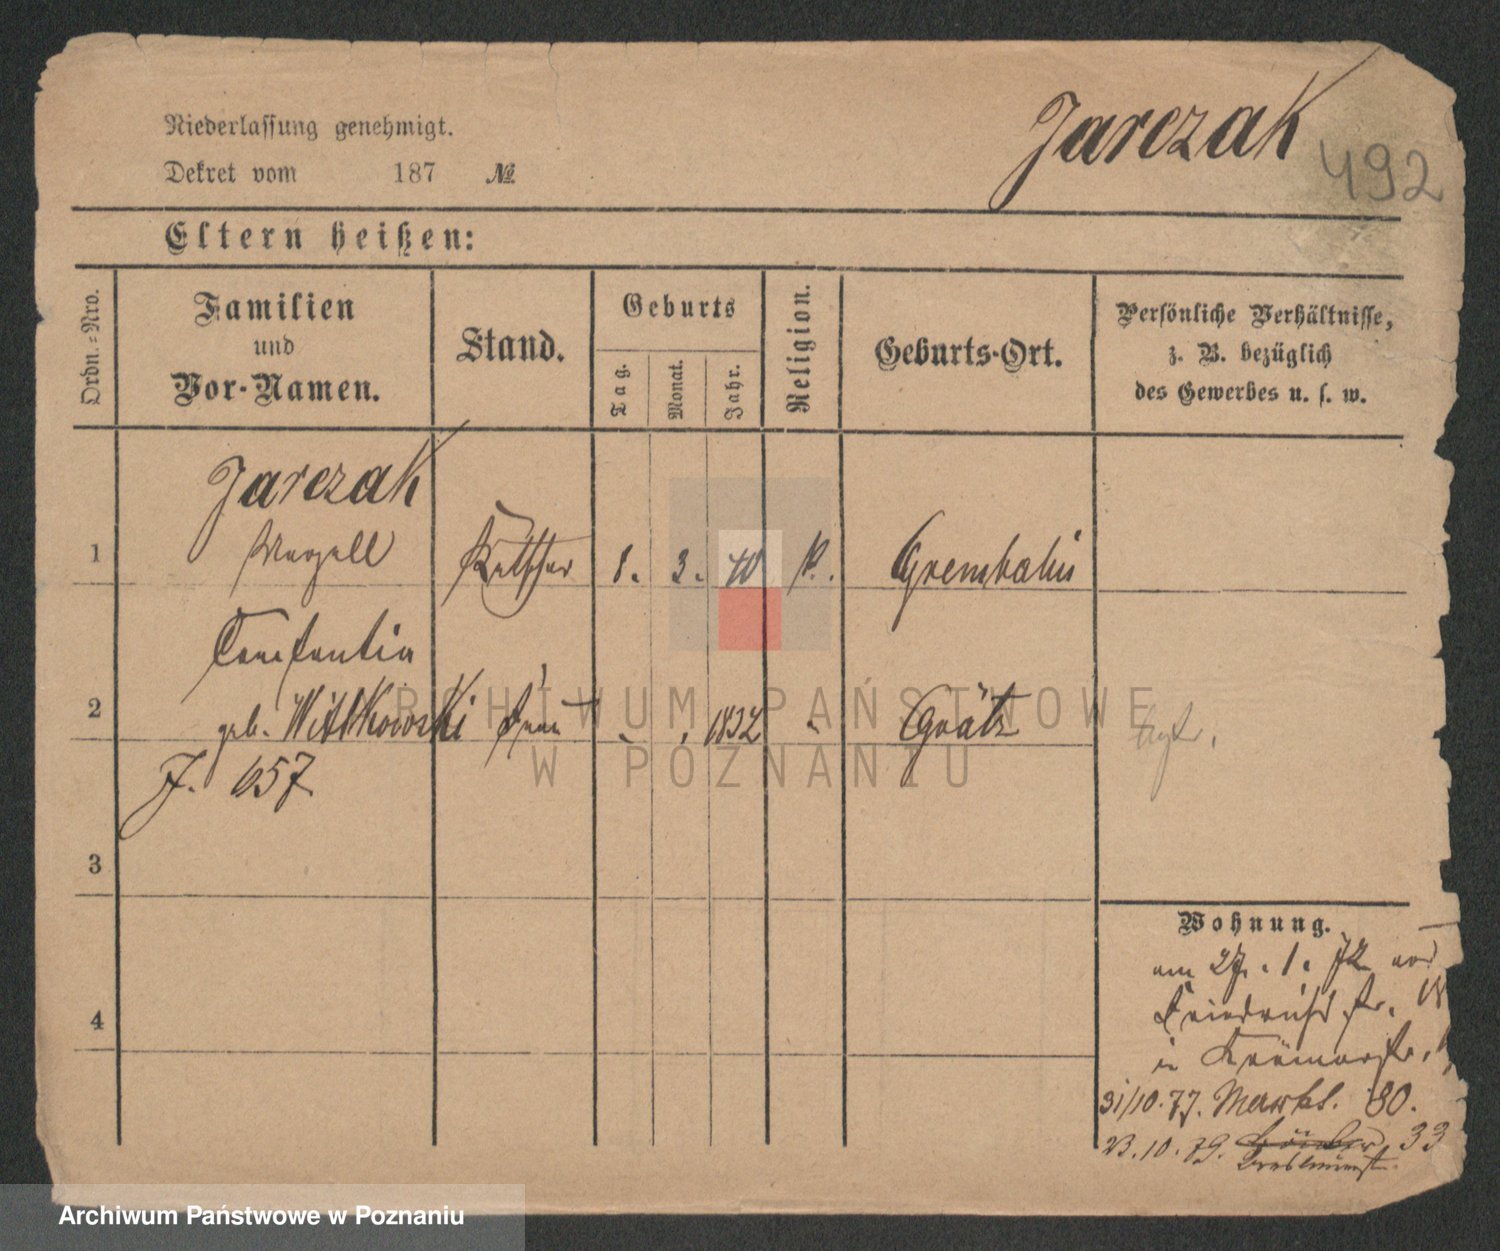 Niederlassung genehmigt.
Dekret vom 187 №
Jarczak
492
Eltern heißen:
Ordn.=Nro.
Familien
und
Vor-Namen.
Stand.
Geburts
Tag.
Monat.
Jahr.
Religion.
Geburts-Ort.
Persönliche Verhältnisse,
z. B. bezüglich
des Gewerbes u. s. w.
Jarczak
1 Marzell Kutscher 1. 3. 40 k. Grembalin
Constantia
2 geb. Wittkowski Frau - 1832 " Grätz
J. 657
3
4
Wohnung.
am 27. 1. 72 von
Friedrichstr.
in Krämerstr.
31/10.77. Markt. 80.
23.10.79. 33
ARCHIWUM PAŃSTWOWE
W POZNANIU
Archiwum Państwowe w Poznaniu